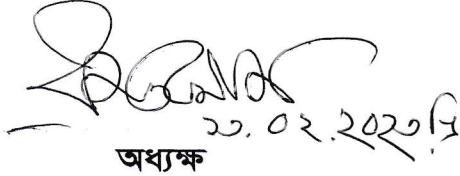 ২৩.০২.২০২৩ খ্রি
অধ্যক্ষ